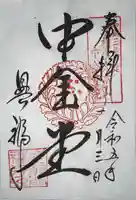 奉拝
令和五年
月三日
中金堂
興福寺